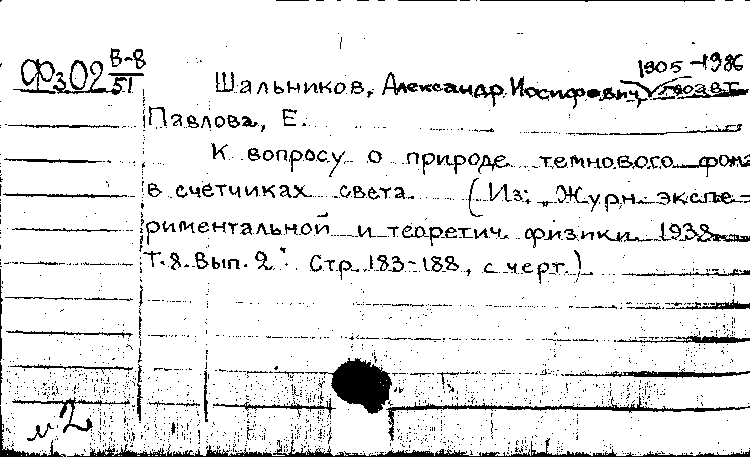 1905-1986
Фз02 В-8/51
Шальников, Александр Иосифович,
Павлова, Е.
К вопросу о природе темнового фона
в счетчиках света. (Из: „Журн. экспе-
риментальной и теоретич. физики 1938
Т.8. Вып. 2". Стр. 183-188, с черт.)
м2